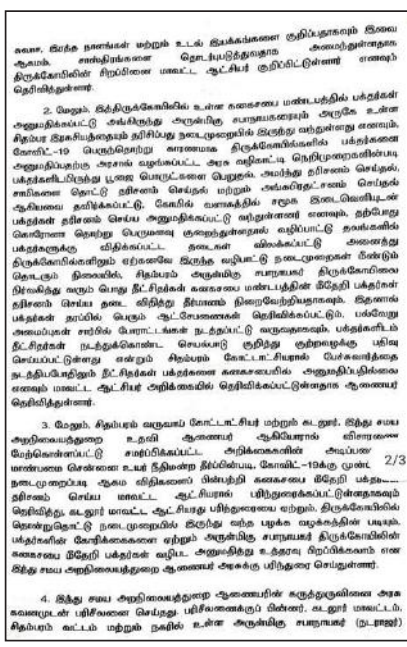 சுவாச, இரத்த நாளங்கள் மற்றும் உடல் இயக்கங்களை குறிப்பதாகவும் இவை
ஆகமம், சாஸ்திரங்களை தொடர்புபடுத்துவதாக அமைந்துள்ளதாக
திருக்கோயிலின் சிறப்பினை மாவட்ட ஆட்சியர் குறிப்பிட்டுள்ளார் எனவும்
தெரிவித்துள்ளார்.
2. மேலும், இத்திருக்கோயிலில் உள்ள கனகசபை மண்டபத்தில் பக்தர்கள்
அனுமதிக்கப்பட்டு அங்கிருந்து அருள்மிகு சபாநாயகரையும் அருகே உள்ள
சிதம்பர இரகசியத்தையும் தரிசிப்பது நடைமுறையில் இருந்து வந்துள்ளது எனவும்,
கோவிட்-19 பெருந்தொற்று காரணமாக திருக்கோயில்களில் பக்தர்களை
அனுமதிப்பதற்கு அரசால் வழங்கப்பட்ட அரசு வழிகாட்டி நெறிமுறைகளின்படி
பக்தர்களிடமிருந்து பூஜை பொருட்களை பெறுதல், அமர்ந்து தரிசனம் செய்தல்,
சாமிகளை தொட்டு தரிசனம் செய்தல் மற்றும் அங்கபிரதட்சணம் செய்தல்
ஆகியவை தவிர்க்கப்பட்டு, கோயில் வளாகத்தில் சமூக இடைவெளியுடன்
பக்தர்கள் தரிசனம் செய்ய அனுமதிக்கப்பட்டு வந்துள்ளனர் எனவும், தற்போது
கொரோனா தொற்று பெருமளவு குறைந்துள்ளதால் வழிப்பாட்டு தலங்களில்
பக்தர்களுக்கு விதிக்கப்பட்ட தடைகள் விலக்கப்பட்டு அனைத்து
திருக்கோயில்களிலும் ஏற்கனவே இருந்த வழிபாட்டு நடைமுறைகள் மீண்டும்
தொடரும் நிலையில், சிதம்பரம் அருள்மிகு சபாநாயகர் திருக்கோயிலை
நிர்வகித்து வரும் பொது தீட்சிதர்கள் கனகசபை மண்டபத்தின் மீதேறி பக்தர்கள்
தரிசனம் செய்ய தடை விதித்து தீர்மானம் நிறைவேற்றியதாகவும், இதனால்
பக்தர்கள் தரப்பில் பெரும் ஆட்சேபணைகள் தெரிவிக்கப்பட்டும், பல்வேறு
அமைப்புகள் சார்பில் போராட்டங்கள் நடத்தப்பட்டு வருவதாகவும், பக்தர்களிடம்
தீட்சிதர்கள் நடந்துக்கொண்ட செயல்பாடு குறித்து குற்றவழக்கு பதிவு
செய்யப்பட்டுள்ளது என்றும் சிதம்பரம் கோட்டாட்சியரால் பேச்சுவார்த்தை
நடத்தியபோதிலும் தீட்சிதர்கள் பக்தர்களை கனகசபையில் அனுமதிப்பதில்லை
எனவும் மாவட்ட ஆட்சியர் அறிக்கையில் தெரிவிக்கப்பட்டுள்ளதாக ஆணையர்
தெரிவித்துள்ளார்.
3. மேலும், சிதம்பரம் வருவாய் கோட்டாட்சியர் மற்றும் கடலூர், இந்து சமய
அறநிலையத்துறை உதவி ஆணையர் ஆகியோரால் விசாரணை
மேற்கொள்ளப்பட்டு சமர்ப்பிக்கப்பட்ட அறிக்கைகளின்
மாண்பமை சென்னை உயர் நீதிமன்ற தீர்ப்பின்படி, கோவிட்-19க்கு 2/3
நடைமுறைப்படி ஆகம விதிகளைப் பின்பற்றி கனகசபை மீதேறி
தரிசனம் செய்ய மாவட்ட ஆட்சியரால் பரிந்துரைக்கப்பட்டுள்ளதாகவும்
தெரிவித்து, கடலூர் மாவட்ட ஆட்சியரது பரிந்துரையை ஏற்றும், திருக்கோயிலில்
தொன்றுதொட்டு நடைமுறையில் இருந்து வந்த பழக்க வழக்கத்தின் படியும்,
பக்தர்களின் கோரிக்கைகளை ஏற்றும் அருள்மிகு சபாநாயகர் திருக்கோயிலின்
கனகசபை மீதேறி பக்தர்கள் வழிபட அனுமதித்து உத்தரவு பிறப்பிக்கலாம் என
இந்து சமய அறநிலையத்துறை ஆணையர் அரசுக்கு பரிந்துரை செய்துள்ளார்.
4. இந்து சமய அறநிலையத்துறை ஆணையரின் கருத்துருவினை அரசு
கவனமுடன் பரிசீலனை செய்தது. பரிசீலனைக்குப் பின்னர், கடலூர் மாவட்டம்,
சிதம்பரம் வட்டம் மற்றும் நகரில் உள்ள அருள்மிகு சபாநாயகர் (நடராஜர்)